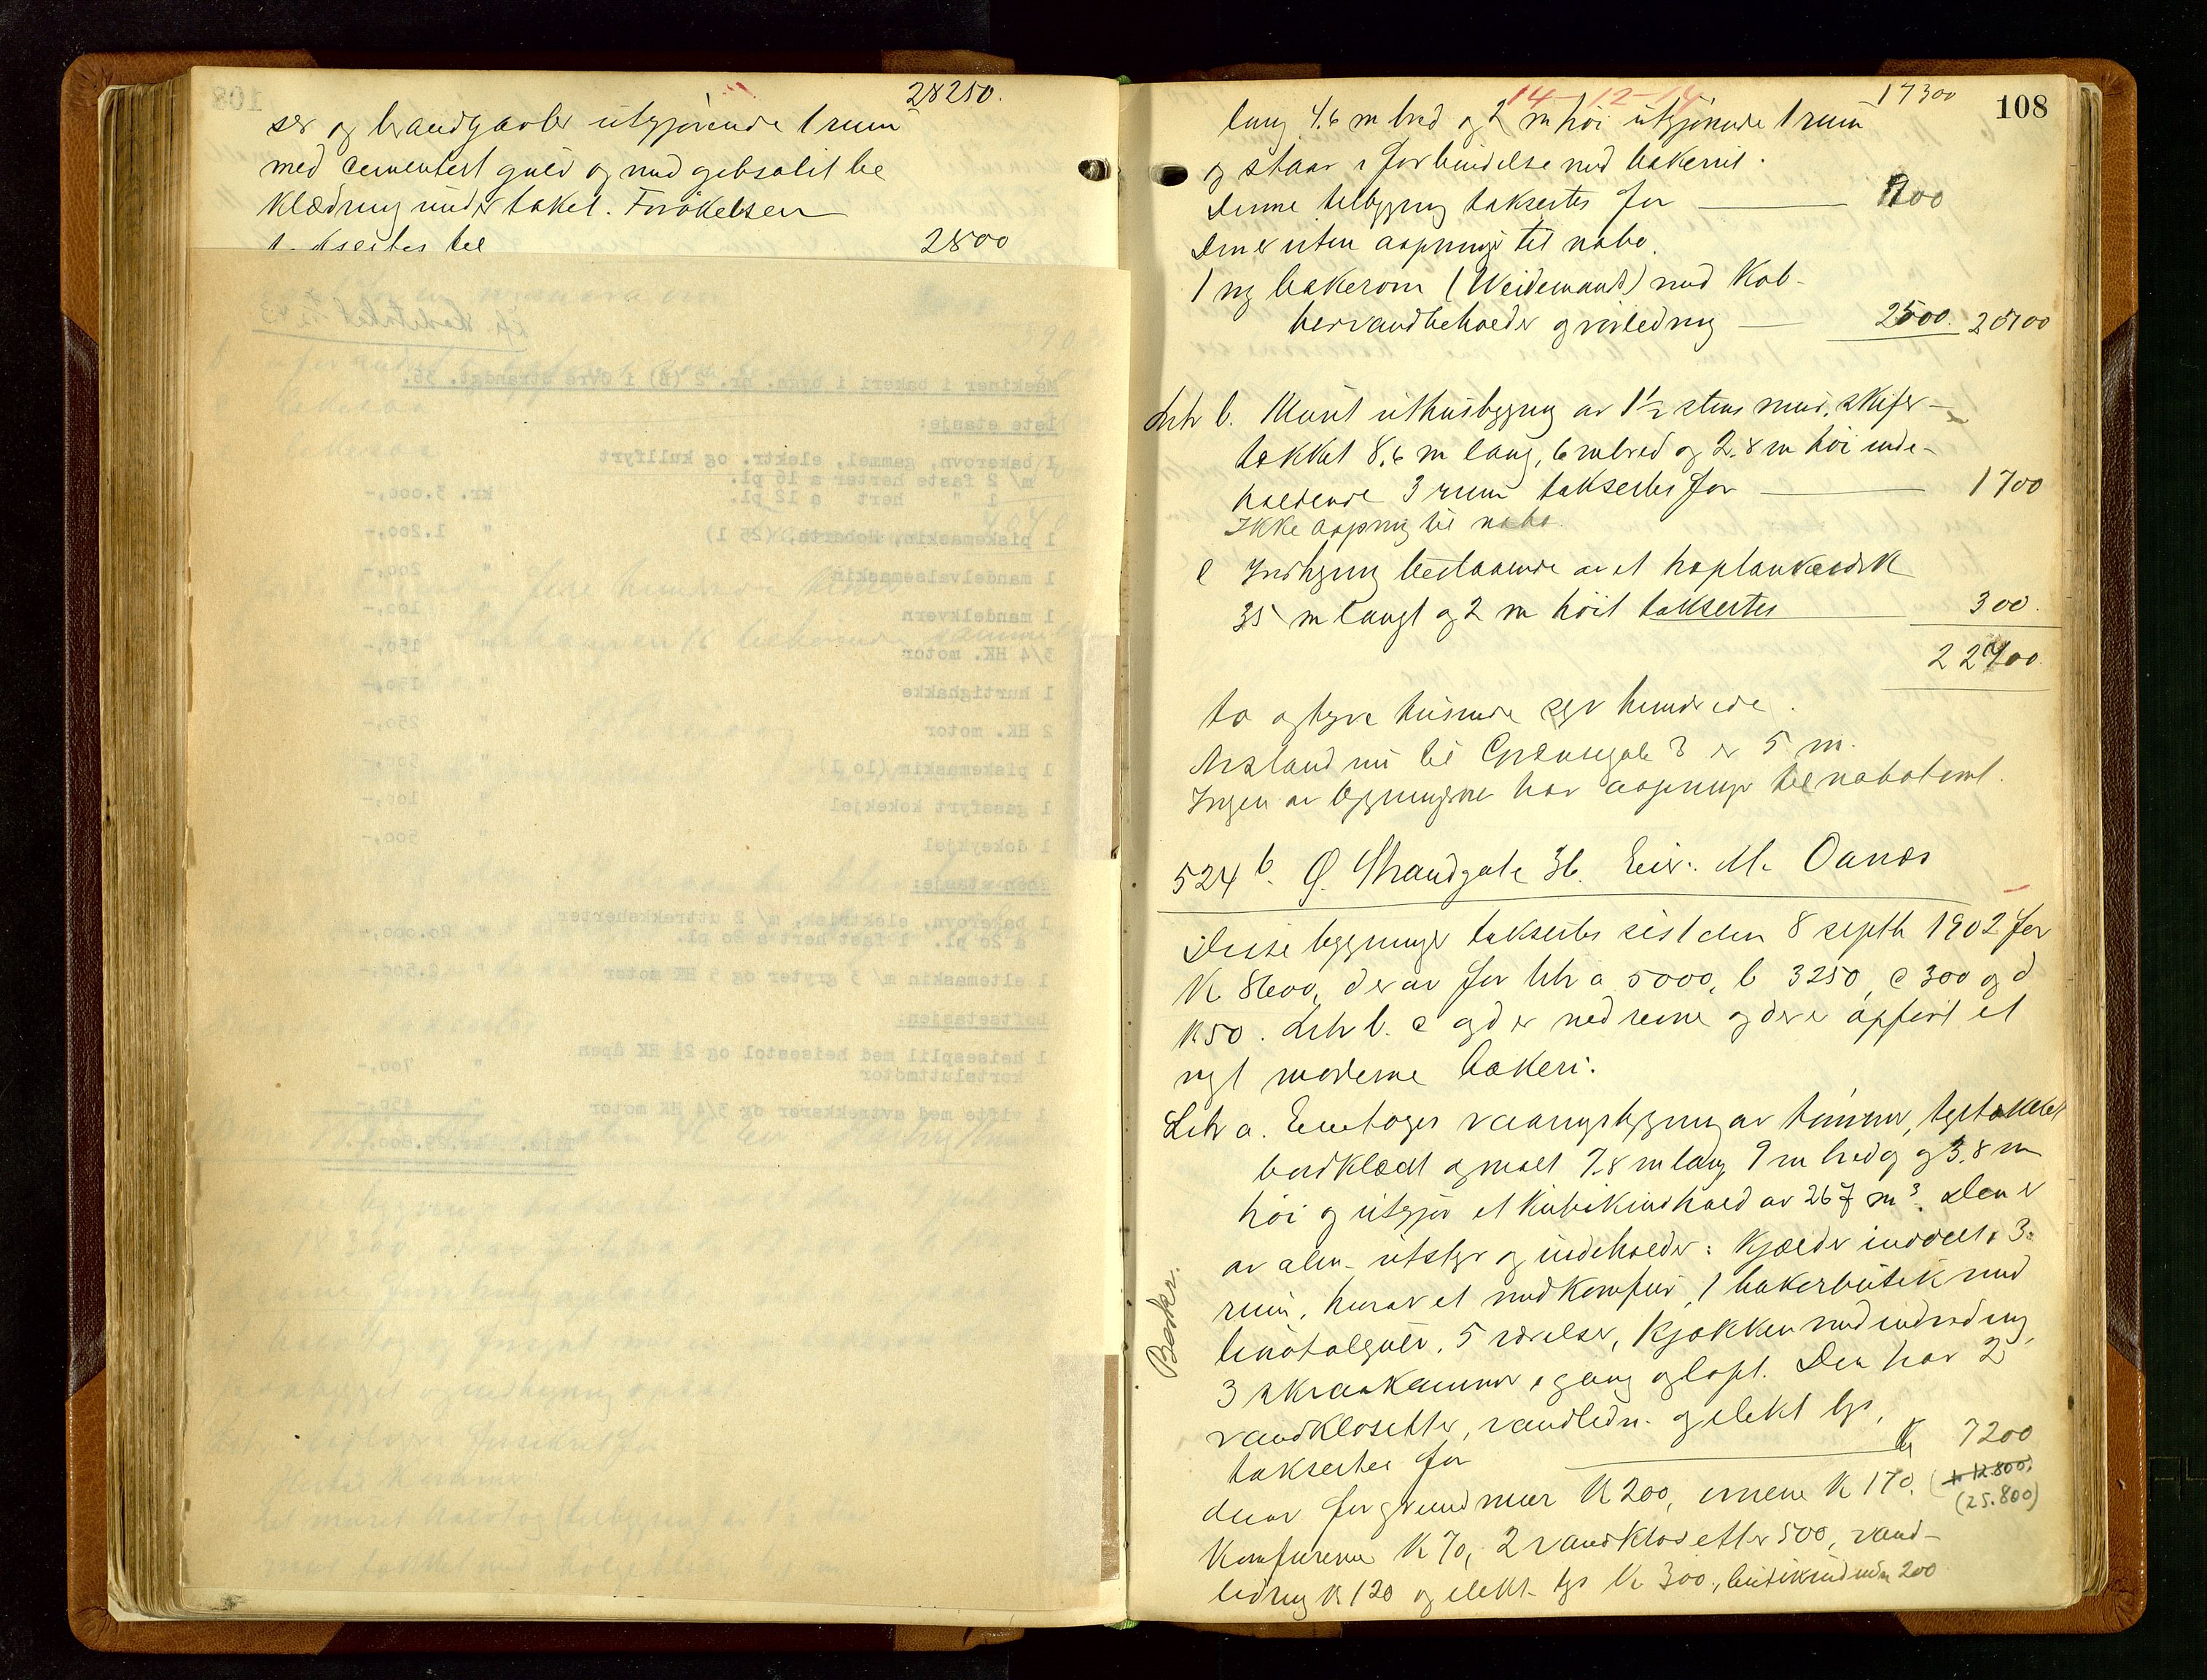 28250.
ser og brandgavler utgjörende 1 rum
med cementert gulv og med gibsolit be
klædning under taket. Forökelsen
takseertes til 2800
Maskiner i bakeri i bygn. nr. 2 (B) i Øvre Strandgt. 36.
1ste etasje:
1 bakerovn, gammel, elektr. og kullfyrt
m/ 2 faste herter a 16 pl.
1 " hert a 12 pl. kr. 3.000,-
1 piskemaskin, Hoberth, (25 l) " 1.200,-
1 mandelvalsemaskin " 200,-
1 mandelkvern " 100,-
3/4 HK. motor " 150,-
1 hurtighakke " 150,-
2 HK. motor " 250,-
1 piskemaskin (10 l) " 500,-
1 gassfyrt kokekjel " 100,-
1 dokeykjel " 500,-
2den etasje:
1 bakerovn, elektrisk, m/ 2 uttrekksherter
a 20 pl. 1 fast hert a 20 pl. " 20.000,-
1 eltemaskin m/ 3 gryter og 5 HK motor " 2.500,-
Loftsetasjen:
1 heisespill med heisestol og 2½ HK åpen
kortsluttmotor " 700,-
1 vifte med avtrekksrør og 3/4 HK motor " 450,-
Tils. kr. 29.800,-
108
14-12-14
17300
lang 4.6 m bred og 2 m höi utgjörende 1 rum
og staar i forbindelse med bakeriet.
Denne tilbygning taksertes for 900
Den er uten aapninger til nabo.
1 ny bakerovn (Weidemands) med Kob-
bervandbeholder og rörledning 2500. 20700
Litr b. Muret uthusbygning av 1½ stens mur, skifer-
tækket 8.6 m lang, 6 m bred og 2.8 m höi inde-
holdende 3 rum taksertes for 1700
Ikke aapning til nabo.
c Indhegning bestaaende av et
35 m langt og 2 m höit taksertes 300.
22700.
to og tyve tusinde syv hundrede.
Avstand nu til Grænsegate 3 er 5 m.
Ingen av bygningerne har aapninger til nabotomt.
524 b. Ø. Strandgate 36. Eier: M. Oanæs
Disse bygninger taksertes sist den 8 septb 1902 for
K 8600, derav for litr a 5000, b 3250, c 300 og d
K 50. Litr b. c og d er nedrevne og der er opfört et
nyt moderne bakeri.
Litr a. Enetages vaaningsbygning av tömmer, tegltækket
bordklædt og malt 7.8 m lang 9 m bred og 3.8 m
höi og utgjör et kubikindhold av 267 m³. Den er
av alm. utstyr og indeholder: Kjælder inddelt i 3
rum, hvorav et med komfur, 1 bakerbutik med
linotolgulv, 5 værelser, kjökken med indredning,
3 skraakammer, gang og loft. Den har 2
vandklosetter, vandledn. og elekt lys,
taksertes for K 7200
derav for grundmur K 200, ovnene K 170. (kr 12.800)
(25.800)
Komfurene K 70, 2 vandklosetter 500, vand-
ledning K 120 og elekt. lys K 300., butikindredn 200
Beskr.